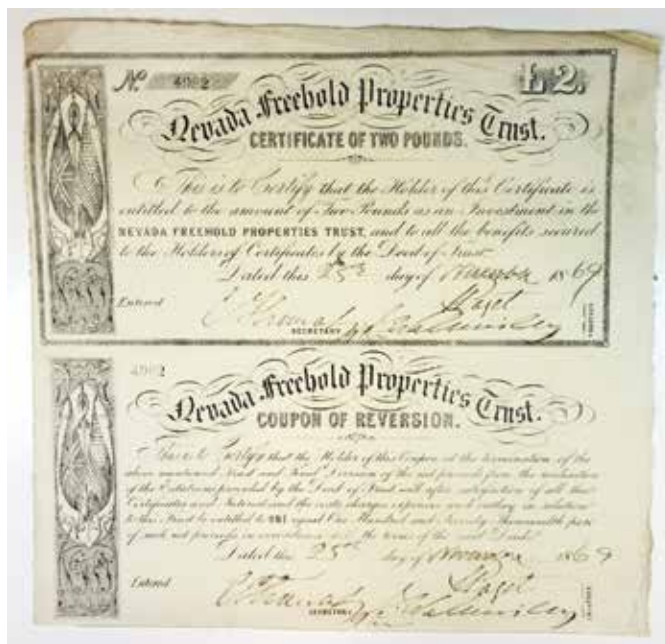 No. 4902 £2.
Nevada Freehold Properties Trust.
CERTIFICATE OF TWO POUNDS.
This is to Certify that the Holder of this Certificate is
entitled to the amount of Two Pounds as an Investment in the
NEVADA FREEHOLD PROPERTIES TRUST, and to all the benefits secured
to the Holders of Certificates by the Deed of Trust
Dated this 25th day of November 1869
Entered
SECRETARY
TRUSTEES
4902
Nevada Freehold Properties Trust.
COUPON OF REVERSION.
This is to Certify that the Holder of this Coupon at the termination of the
above mentioned Trust and Final Division of the net proceeds from the realization
of the Estates provided by the Deed of Trust and after satisfaction of all the
Certificates and Interest and the costs charges expenses and outlay in relation
to this Trust is entitled to one equal One Hundred and Seventy Thousandth part
of such net proceeds in accordance with the terms of the said Deed
Dated this 25th day of November 1869
Entered
SECRETARY
TRUSTEES